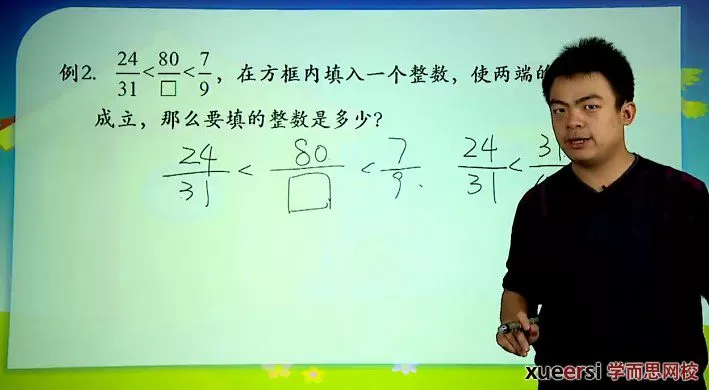 例2. 24/31<80/□<7/9，在方框内填入一个整数，使两端的
成立，那么要填的整数是多少？
24/31 < 80/□ < 7/9. 24/31 < 31/
xueersi 学而思网校